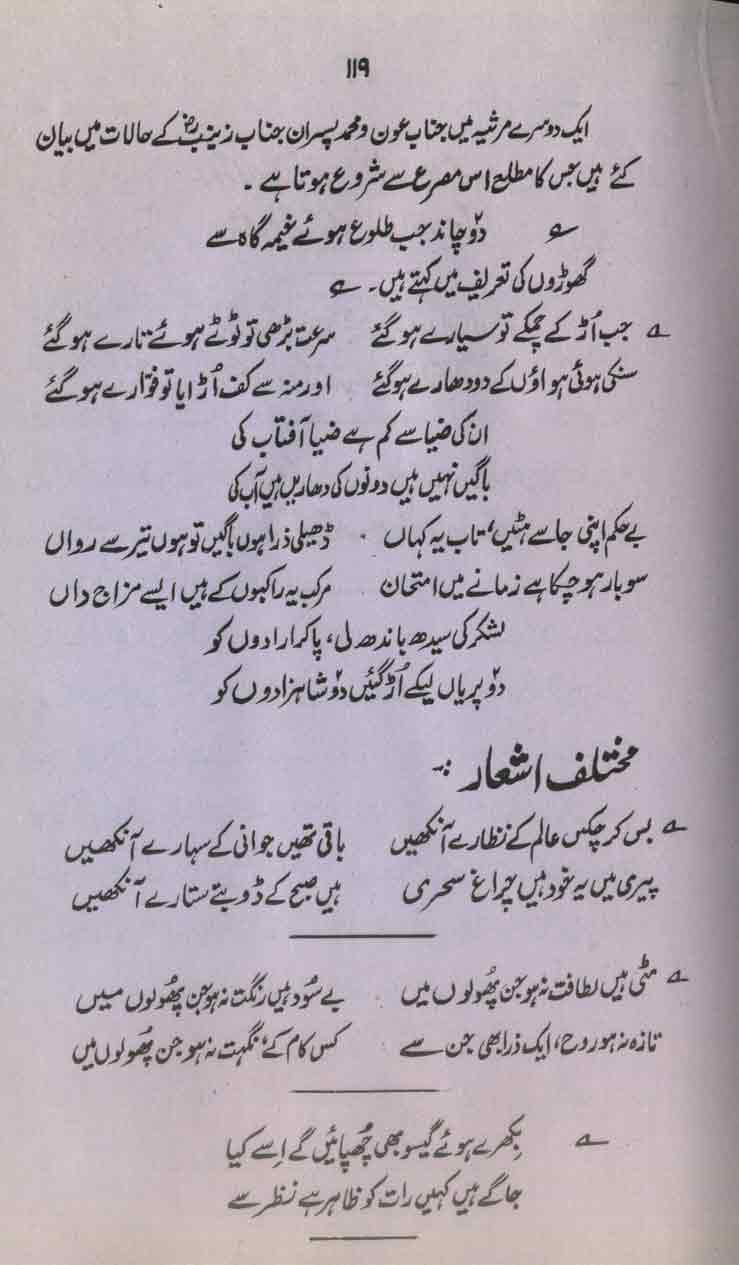 ۱۱۹
ایک دوسرے مرثیہ میں جناب عون و محمد پسران جناب زینبؓ کے حالات میں بیان
کئے ہیں جس کا مطلع اس مصرع سے شروع ہوتا ہے ۔
؎ دو چاند جب طلوع ہوئے خیمہ گاہ سے
گھوڑوں کی تعریف میں کہتے ہیں۔ ؎
؎ جب اُڑ کے چمکے تو سیارے ہو گئے سرعت بڑھی تو ٹوٹے ہوئے تارے ہو گئے
سنکی ہوئی ہواؤں کے دو دھارے ہو گئے اور منہ سے کف اُڑایا تو فوّارے ہو گئے
ان کی ضیا سے کم ہے ضیا آفتاب کی
باگیں نہیں ہیں دونوں کی دھاریں ہیں آب کی
بے حکم اپنی جا سے ہٹیں، تاب یہ کہاں ڈھیلی ذرا ہوں باگیں تو ہوں تیر سے رواں
سو بار ہو چکا ہے زمانے میں امتحان مرکب یہ راکبوں کے ہیں ایسے مزاج داں
لشکر کی سیدھ باندھ لی، پا کر ارادوں کو
دو پریاں لیکے اُڑ گئیں دو شاہزادوں کو
مختلف اشعار :۔
؎ بس کر چکیں عالم کے نظارے آنکھیں باقی تھیں جوانی کے سہارے آنکھیں
پیری میں یہ خود ہیں چراغ سحری ہیں صبح کے ڈوبتے ستارے آنکھیں
؎ مٹی ہیں لطافت نہ ہو جن پھُولوں میں بے سُود ہیں رنگت نہ ہو جن پھُولوں میں
تازہ نہ ہو روح، ایک ذرا بھی جن سے کس کام کے، نگہت نہ ہو جن پھُولوں میں
؎ بِکھرے ہوئے گیسو بھی چھُپائیں گے اِسے کیا
جاگے ہیں کہیں رات کو ظاہر ہے نظر سے